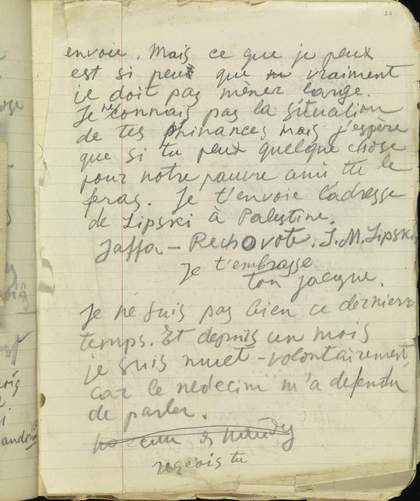 envoie. Mais ce que je peux
est si peu que vraiment
je doit pas mener large.
Je ne connais pas la situation
de tes phinances mais j'espère
que si tu peux quelque chose
pour notre pauvre ami tu le
feras. Je t'envoie l'adresse
de Lipski à Palestine.
Jaffa – Rechovote. J. M. Lipski
Je t'embrasse
ton Jacque.
Je ne suis pas bien ce derniers
temps. Et depuis un mois
je suis muet - volontairement,
car le medecim m'a defendu
de parler.
reçois tu